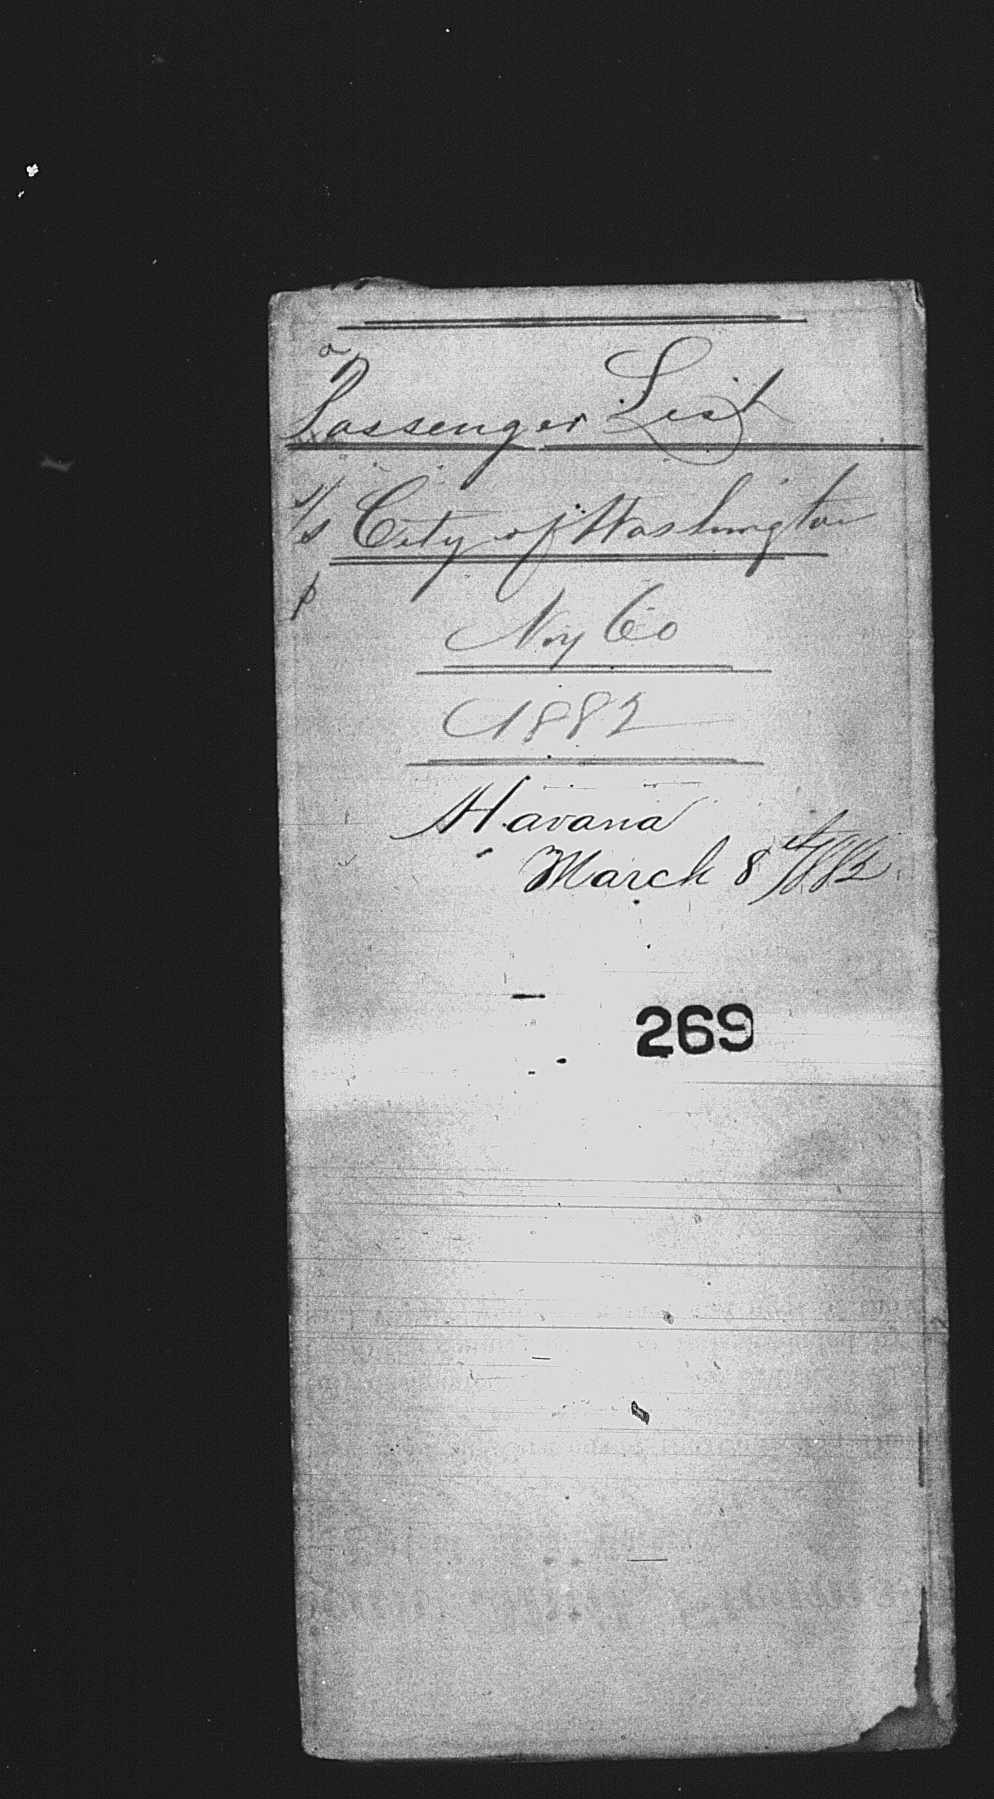 Passenger List
S/S City of Washington
Voy 60
1882
Havana
March 8th/1882
269